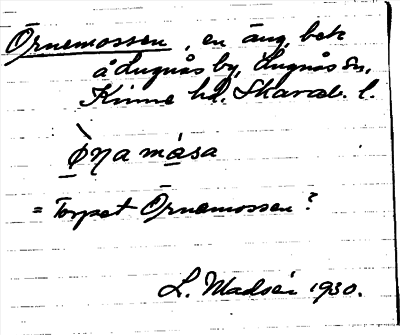 Örnemossen, en äng, bek
å Lugnås by, Lugnås sn,
Kinne hd. Skarab. l.
ø̀ŋa måsa
= Torpet Örnemossen?
L. Madsén 1930.